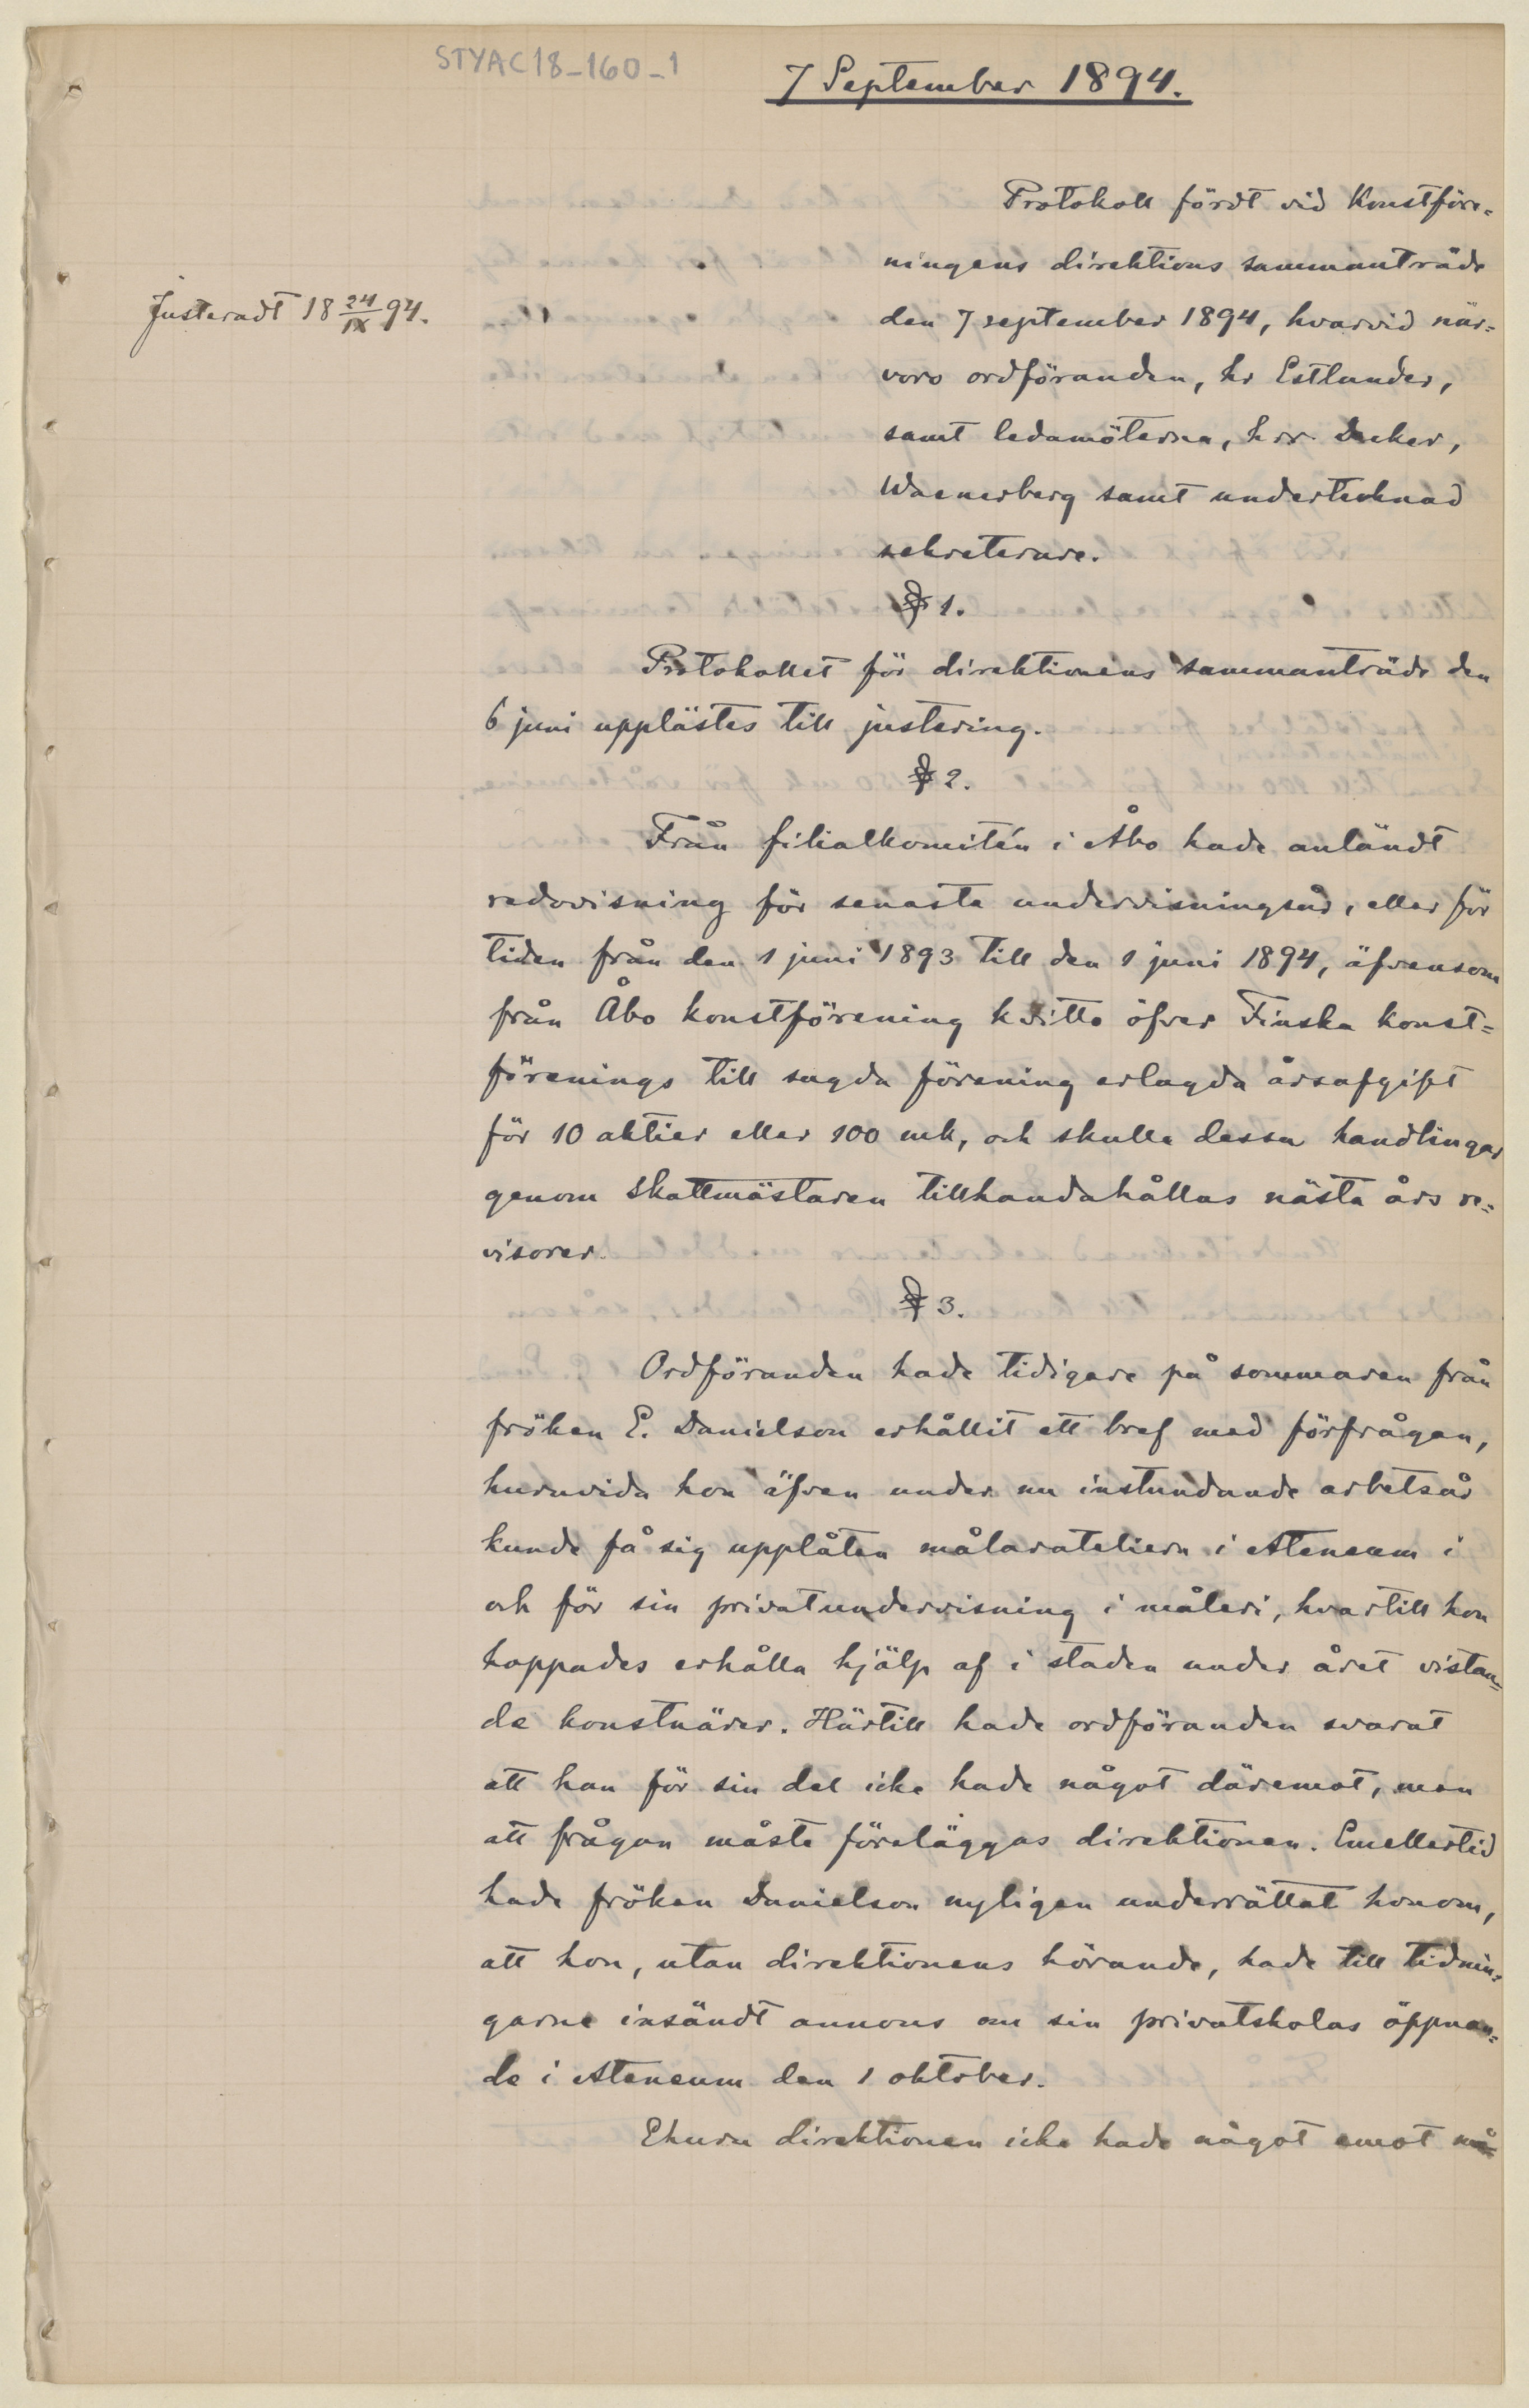 STYAC18_160_1
7 September 1894.
Justeradt 18 24/IX 94.
Protokoll fördt vid Konstföre=
ningens direktions sammanträde
den 7 september 1894, hvarvid när=
voro ordföranden, hr Estlander,
samt ledamöterna, hrr Decker,
Waenerberg samt undertecknad
sekreterare.
§ 1.
Protokollet för direktionens sammanträde den
6 juni upplästes till justering.
§ 2.
Från filialkomitén i Åbo hade anländt
redovisning för senaste undervisningsår, eller för
tiden från den 1 juni 1893 till den 1 juni 1894, äfvensom
från Åbo konstförening kvitto öfver Finska konst=
förenings till sagda förening erlagda årsafgift
för 10 aktier eller 100 mk, och skulle dessa handlingar
genom skattmästaren tillhandahållas nästa års re=
visorer.
§ 3.
Ordföranden hade tidigare på sommaren från
fröken E. Danielson erhållit ett bref med förfrågan,
huruvida hon äfven under nu instundande arbetsår
kunde få sig upplåten målarateliern i Ateneum i
och för sin privatundervisning i måleri, hvartill hon
hoppades erhålla hjälp af i staden under året vistan=
de konstnärer. Härtill hade ordföranden svarat
att han för sin del icke hade något däremot, men
att frågan måste föreläggas direktionen. Emellertid
hade fröken Danielson nyligen underrättat honom,
att hon, utan direktionens hörande, hade till tidnin=
garne insändt annons om sin privatskolas öppnan=
de i Ateneum den 1 oktober.
Ehuru direktionen icke hade något emot må=